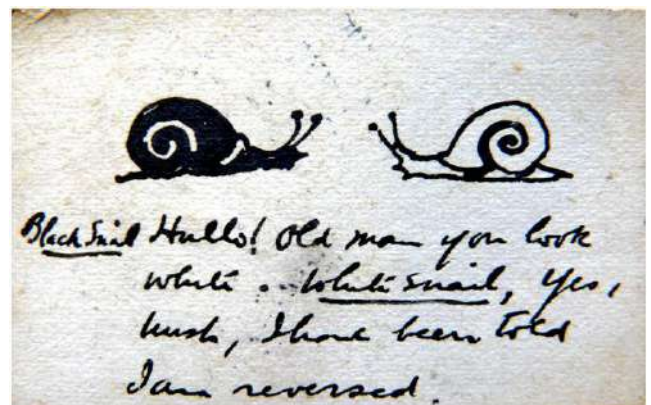 Black Snail Hullo! Old man you look
white. White Snail, Yes,
hush, I have been told
I am reversed.